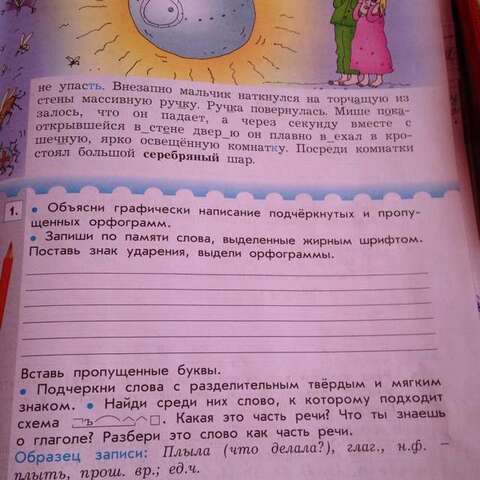 не упасть. Внезапно мальчик наткнулся на торчащую из
стены массивную ручку. Ручка повернулась. Мише пока-
залось, что он падает, а через секунду вместе с
открывшейся в_стене двер_ю он плавно в_ехал в кро-
шечную, ярко освещённую комнатку. Посреди комнатки
стоял большой серебряный шар.
1. • Объясни графически написание подчёркнутых и пропу-
щенных орфограмм.
• Запиши по памяти слова, выделенные жирным шрифтом.
Поставь знак ударения, выдели орфограммы.
Вставь пропущенные буквы.
• Подчеркни слова с разделительным твёрдым и мягким
знаком. • Найди среди них слово, к которому подходит
схема ъ. Какая это часть речи? Что ты знаешь
о глаголе? Разбери это слово как часть речи.
Образец записи: Плыла (что делала?), глаг., н.ф. –
плыть, прош. вр.; ед.ч.